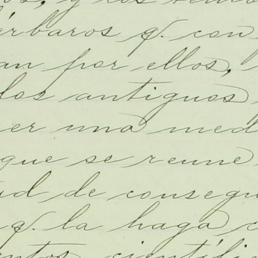 y los
érbaros q. con
an por ellos,
los antiguos
er una med
que se reune
ud de consegu
q. la haga c
entos científi